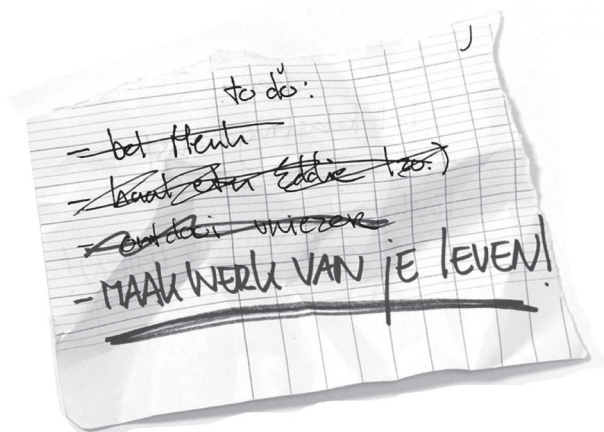 to do:
- bel Henk
- Eddie (zo.)
- ontdooi vriezer
- MAAK WERK VAN JE LEVEN!